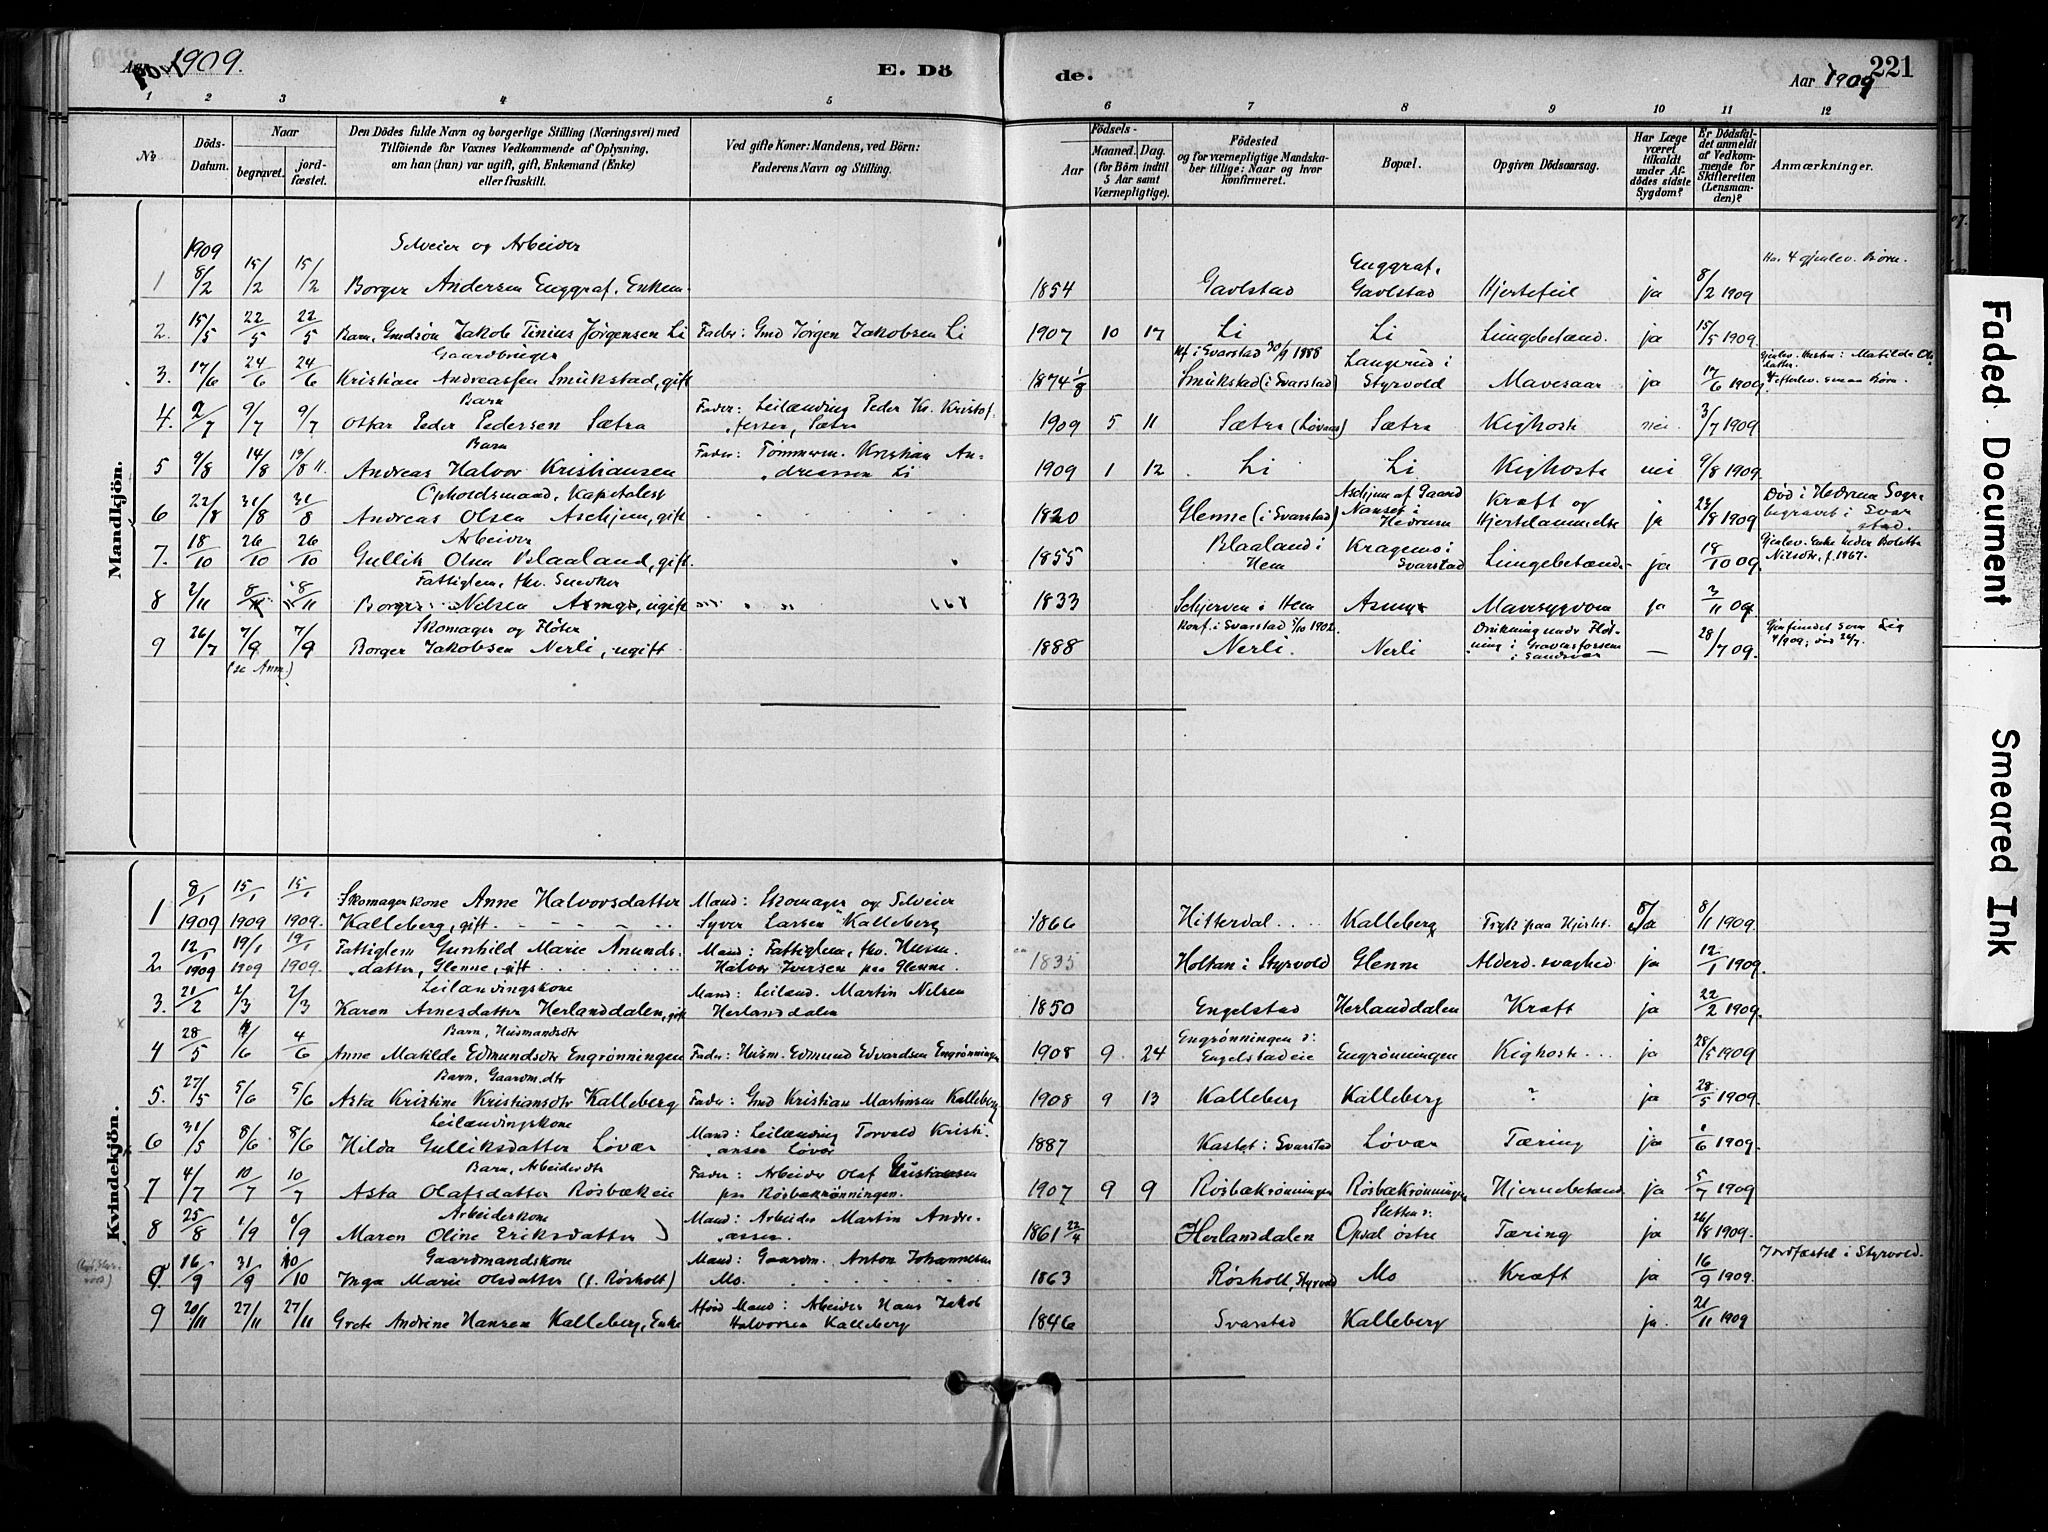 Aar 1909.
E. Dö
de.
Aar 1909
221
1 2 3 4 5 6 7 8 9 10 11 12
No
Döds-Datum.
Naar
begravet.
jord-fæstet.
Den Dödes fulde Navn og borgerlige Stilling (Næringsvei) med
Tilföiende for Voxnes Vedkommende af Oplysning,
om han (hun) var ugift, gift, Enkemand (Enke)
eller fraskilt.
Ved gifte Koner: Mandens, ved Börn:
Faderens Navn og Stilling.
Födsels-
Aar
Maaned. Dag.
(for Börn indtil
5 Aar samt
Værnepligtige).
Födested
og for værnepligtige Mandska-
ber tillige: Naar og hvor
konfirmeret.
Bopæl.
Opgiven Dödsaarsag.
Har Læge
været
tilkaldt
under Af-
dödes sidste
Sygdom?
Er Dödsfal-
det anmeldt
af Vedkom-
mende for
Skifteretten
(Lensman-
den)?
Anmærkninger.
Mandkjön.
1909 Selveier og Arbeider Enggraf. Har 4 gjenlev. Børn.
1 8/2 15/2 15/2 Borger Andersen Enggraf. Enkem. 1854 Gavlstad Gavlstad Hjertefeil ja 8/2 1909
2. 15/5 22/5 22/5 Barn, Gmdsøn Jakob Tinius Jørgensen Li Fader: Gmd Jørgen Jakobsen Li 1907 10 17 Li Li Lungebetænd. ja 15/5 1909.
Gaardbruger kf. i Svarstad 30/9 1888 Langerud i Gjenlev. Hustru: Matilde Ols
datter.
3. 17/6 24/6 24/6 Kristian Andreassen Smukstad, gift 1874 1/8 Smukstad (i Svarstad) Styrvold Mavesaar ja 17/6 1909. 4 efterlev. smaa Børn.
Barn Fader: Leilænding Peder Kr. Kristof-
4. 2/7 9/7 9/7 Oskar Peder Pedersen Sætra fersen, Sætra 1909 5 11 Sætra Sætra Kighoste nei 3/7 1909
Barn Fader: Tømmerm. Kristian An-
5 9/8 14/8 Andreas Halvor Kristiansen dreassen Li 1909 1 12 Li Li Kighoste nei 9/8 1909.
Opholdsmand, Kapitalist Aschjem af Gaard Kræft og Død i Hedrum Sogn
6 22/8 31/8 31/8 Andreas Olsen Aschjem, gift 1820 Glenne (i Svarstad) Nanset i Hedrum Hjertelammelse ja 23/8 1909 begravet i Svar
stad.
Arbeider Blaaland i Gjenlev. Enke Boletta
7. 18/10 26/10 26/10 Gullik Olsen Blaaland, gift. 1855 Hem Svarstad Lungebetænd. ja 18/10 09. Nilsdtr, f. 1867.
Fattiglem, fhv. Snedker
8 2/11 8/11 8/11 Borger Nilsen, ugift 1833 i Hem Mavesygdom ja 3/11 09
Skomager og Fløter Konf. i Svarstad 5/10 1902. Drukning under Fløt-
9 26/7 7/9 7/9 Borger Jakobsen Nerli, ugift 1888 Nerli. Nerli ning i — 28/7 09. Gjenfundet som Lig
(se Anm) i Sandsvær
Kvindekjön.
8/1 15/1 15/1 Skomagerkone Anne Halvorsdatter Mand: Skomager og Selveier
1 1909 1909 1909. Kalleberg, gift. Syver Larsen Kalleberg 1866 Hitterdal Kalleberg Tryk paa Hjertet. ja 8/1 1909.
12/1 19/1 19/1 Fattiglem Gunhild Marie Amunds- Mand: Fattiglem, fhv. Husm.
2. 1909 1909 1909. datter, Glenne, gift Halvor Iversen paa Glenne. 1835 Holtan i Styrvold Glenne Alderd. svaghed ja 12/1 1909.
Leilændingskone Mand: Leilænd. Martin Nilsen
3. 21/2 2/3 2/3 Karen Arnesdatter Herlanddalen, gift Herlanddalen 1850 Engelstad Herlanddalen Kræft ja 22/2 1909.
Barn, Husmandsdtr Engrønningen i
4 28/5 4/6 4/6 Anne Matilde Edmundsdtr Engrønningen Fader: Husm. Edmund Edvardsen Engrønningen 1908 9. 24 Engelstadeie Engrønningen Kighoste ja 28/5 1909
Barn, Gaardm.dtr
5. 27/5 5/6 5/6 Asta Kristine Kristiansdtr Kalleberg Fader: Gmd Kristian Martinsen Kalleberg 1908 9 13 Kalleberg Kalleberg ? ja 28/5 1909.
Leilændingskone Mand: Leilænding Torvald Kristi-
6 31/5 8/6 8/6 Hilda Gulliksdatter Løvær ansen Løvær 1887 Kastet i Svarstad Løvær Tæring ja 1/6 1909.
Barn, Arbeiderdtr Fader: Arbeider Olaf Kristiansen
7 4/7 10/7 10/7 Asta Olafsdatter Rösbækeie paa Rösbækrønningen. 1907 9 9 Rösbækrønningen Rösbækrønningen Hjernebetænd. ja 5/7 1909
Arbeiderkone Mand: Arbeider Martin Andre- Sletten i
8 25/8 1/9 1/9 Maren Oline Eriksdatter assen. 1861 22/4 Herlanddalen Opdal östre Tæring ja 26/8 1909.
Gaardmandskone Mand: Gaardm. Anton Johannesen Jordfæstet i Styrvold.
9. 16/9 31/9 10/10 Inga Marie Olsdatter (f. Rösholt) Mo. 1863 Rösholt, Styrvold Mo Kræft ja 16/9 1909.
Afdød Mand: Arbeider Hans Jakob
9 20/11 27/11 27/11 Grete Andrine Hansen Kalleberg, Enke Halvorsen Kalleberg 1846 Svarstad Kalleberg ja 21/11 1909
Faded Document
Smeared Ink